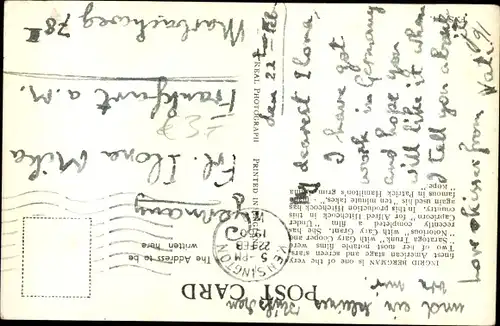 POST CARD
The Address to be
written here
KENSINGTON
5 - PM
22 FEB
1950
Frl. Ilona Mika
Frankfurt a. M.
78
Germany
REAL PHOTOGRAPH
PRINTED IN
den 22
dearest Ilona!
I have got
work in Germany
and hope you
will like it when
I tell you about
Love + kisses from
und ein kleines
von mir
INGRID BERGMAN is one of the very
finest American stage and screen stars.
Two of her most notable films were
"Saratoga Trunk" with Gary Cooper and
"Notorious" with Cary Grant. She has
recently completed a film "Under
Capricorn" for Alfred Hitchcock in this
country. In this production Hitchcock has
again used his "ten minute takes,"
famous in Patrick Hamilton's
"Rope."